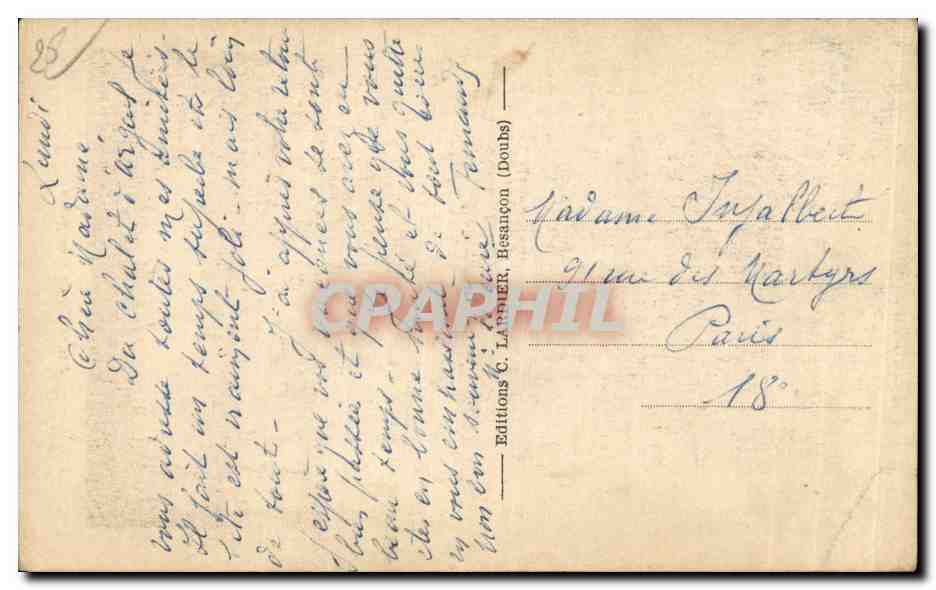 25
Lundi
Chère Madame
Du chalet d'Arguel je
vous adresse toutes mes amitiés -
Il fait un temps superbe et le
site est vraiment joli - mais loin
de tout -
J'ai appris votre retour
J'espère que vos vacances se sont
bien passées et que vous avez eu
beau temps - Je pense que vous
êtes en bonne santé et vous quitte
en vous embrassant de tout cœur
mon bon souvenir
Editions C. LARDIER, Besançon (Doubs)
Madame Injalbert
91 rue des Martyrs
Paris
18°
CPAPHIL